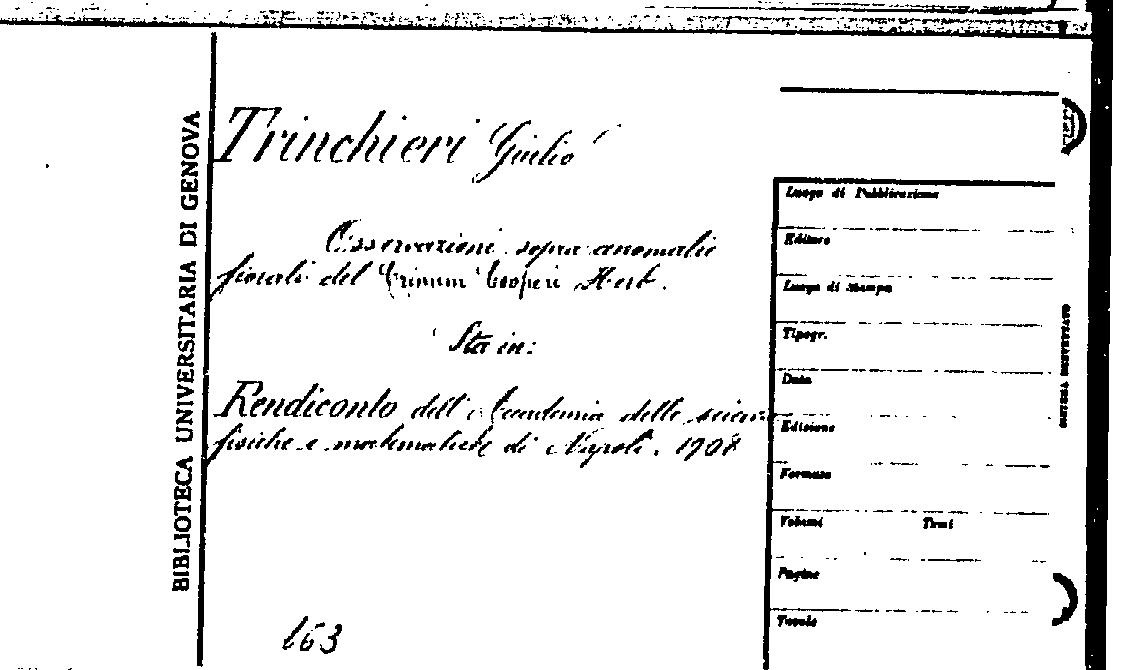 BIBLIOTECA UNIVERSITARIA DI GENOVA
Trinchieri Giulio
Osservazioni sopra anomalie
fiorali del Crinum Cooperi Herb.
Sta in:
Rendiconto dell'Accademia delle scienze
fisiche e matematiche di Napoli. 1908
163
Luogo di Pubblicazione
Editore
Luogo di Stampa
Tipogr.
Data
Edizione
Formato
Volumi Tomi
Pagine
Tavole